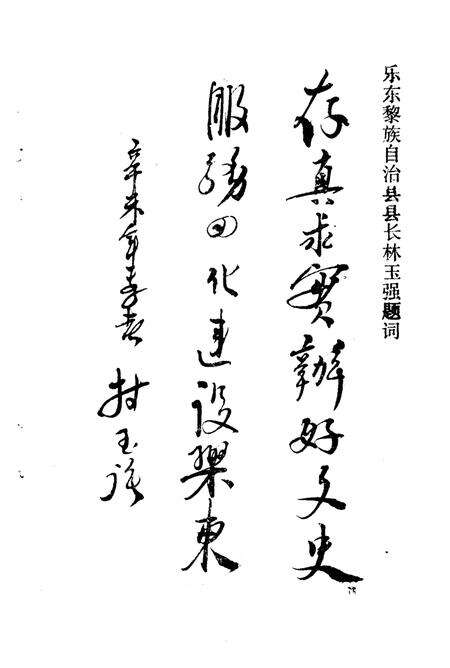 乐东黎族自治县县长林玉强题词
存真求實辦好文史
服務四化建设樂東
辛未年季春 林玉强